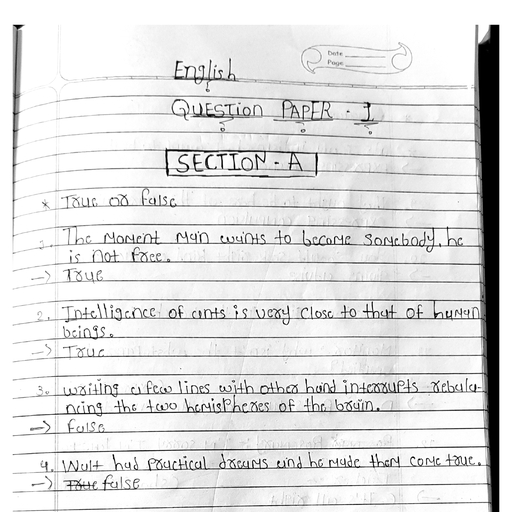 Date
Page
English
QUESTION PAPER - I
SECTION - A
* True or false
1. The Moment Man wants to become somebody, he
is not free.
-> True
2. Intelligence of ants is very close to that of human
beings.
-> True
3. writing a few lines with other hand interrupts rebala-
ncing the two hemispheres of the brain.
-> false
4. Walt had practical dreams and he made them come true.
-> True false